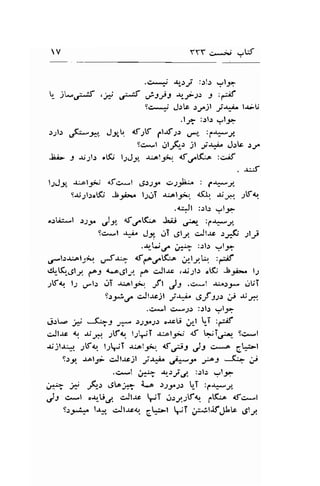 کتاب نخست ۳۳۳ ۱۷
جواب داد: تردید نیست.
گفتم: و درخرید و فروش کشتی نیز، کشتی‌ساز یا
ناخدا مفیدتر ازمرد عادل است؟
جواب داد: چرا.
پرسیدم: پس درکدام کار که با پول بستگی دارد
مرد عادل مفیدتر از دیگران است؟
گفت: هنگامی‌که بخواهند پول را نگاه دارند و حفظ
کنند.
پرسیدم : منظورت موردی است‌که نخواهند پول را
بکار برند بلکه بخواهند آن‌را محفوظ نگاه‌دارند؟
جواب داد: البته.
پرسیدم: یعنی فقط هنگامی‌که پول مورد استفاده
قرار نگیرد عدالت برای آن پول مفید است؟
جواب داد: چنین می‌نماید.
گفتم: بنابراین هنگامی‌هم‌که کسی بخواهد داس‌باغبانی
را محفوظ نگاه دارد، عدالت هم برای‌همه و هم برای‌یک‌یک
آنان سودمند است. ولی اگر بخواهند آن داس را بکار
برند فن مفیدتر ازعدالت می‌شود؟
جواب داد: درست است.
گفتم: آیا این قاعده درمورد سپر و چنگ نیز صادق
است؟ یعنی که بخواهند آنها را بکار برند به عدالت
احتیاج هست ولی وقتی‌که بخواهند آنها را بکار اندازند
فن جنگ و هنر موسیقی مفیدتر ازعدالت خواهد بود؟
جواب داد: بی‌تردید چنین است.
پرسیدم: آیا درمورد همه چیزهای دیگر نیز چنین
است‌که هنگام بکاربردن آنها عدالت بی‌فایده است ولی
برای عاطل‌گذاشتن آنها احتیاج بعدالت پیدا می‌شود؟